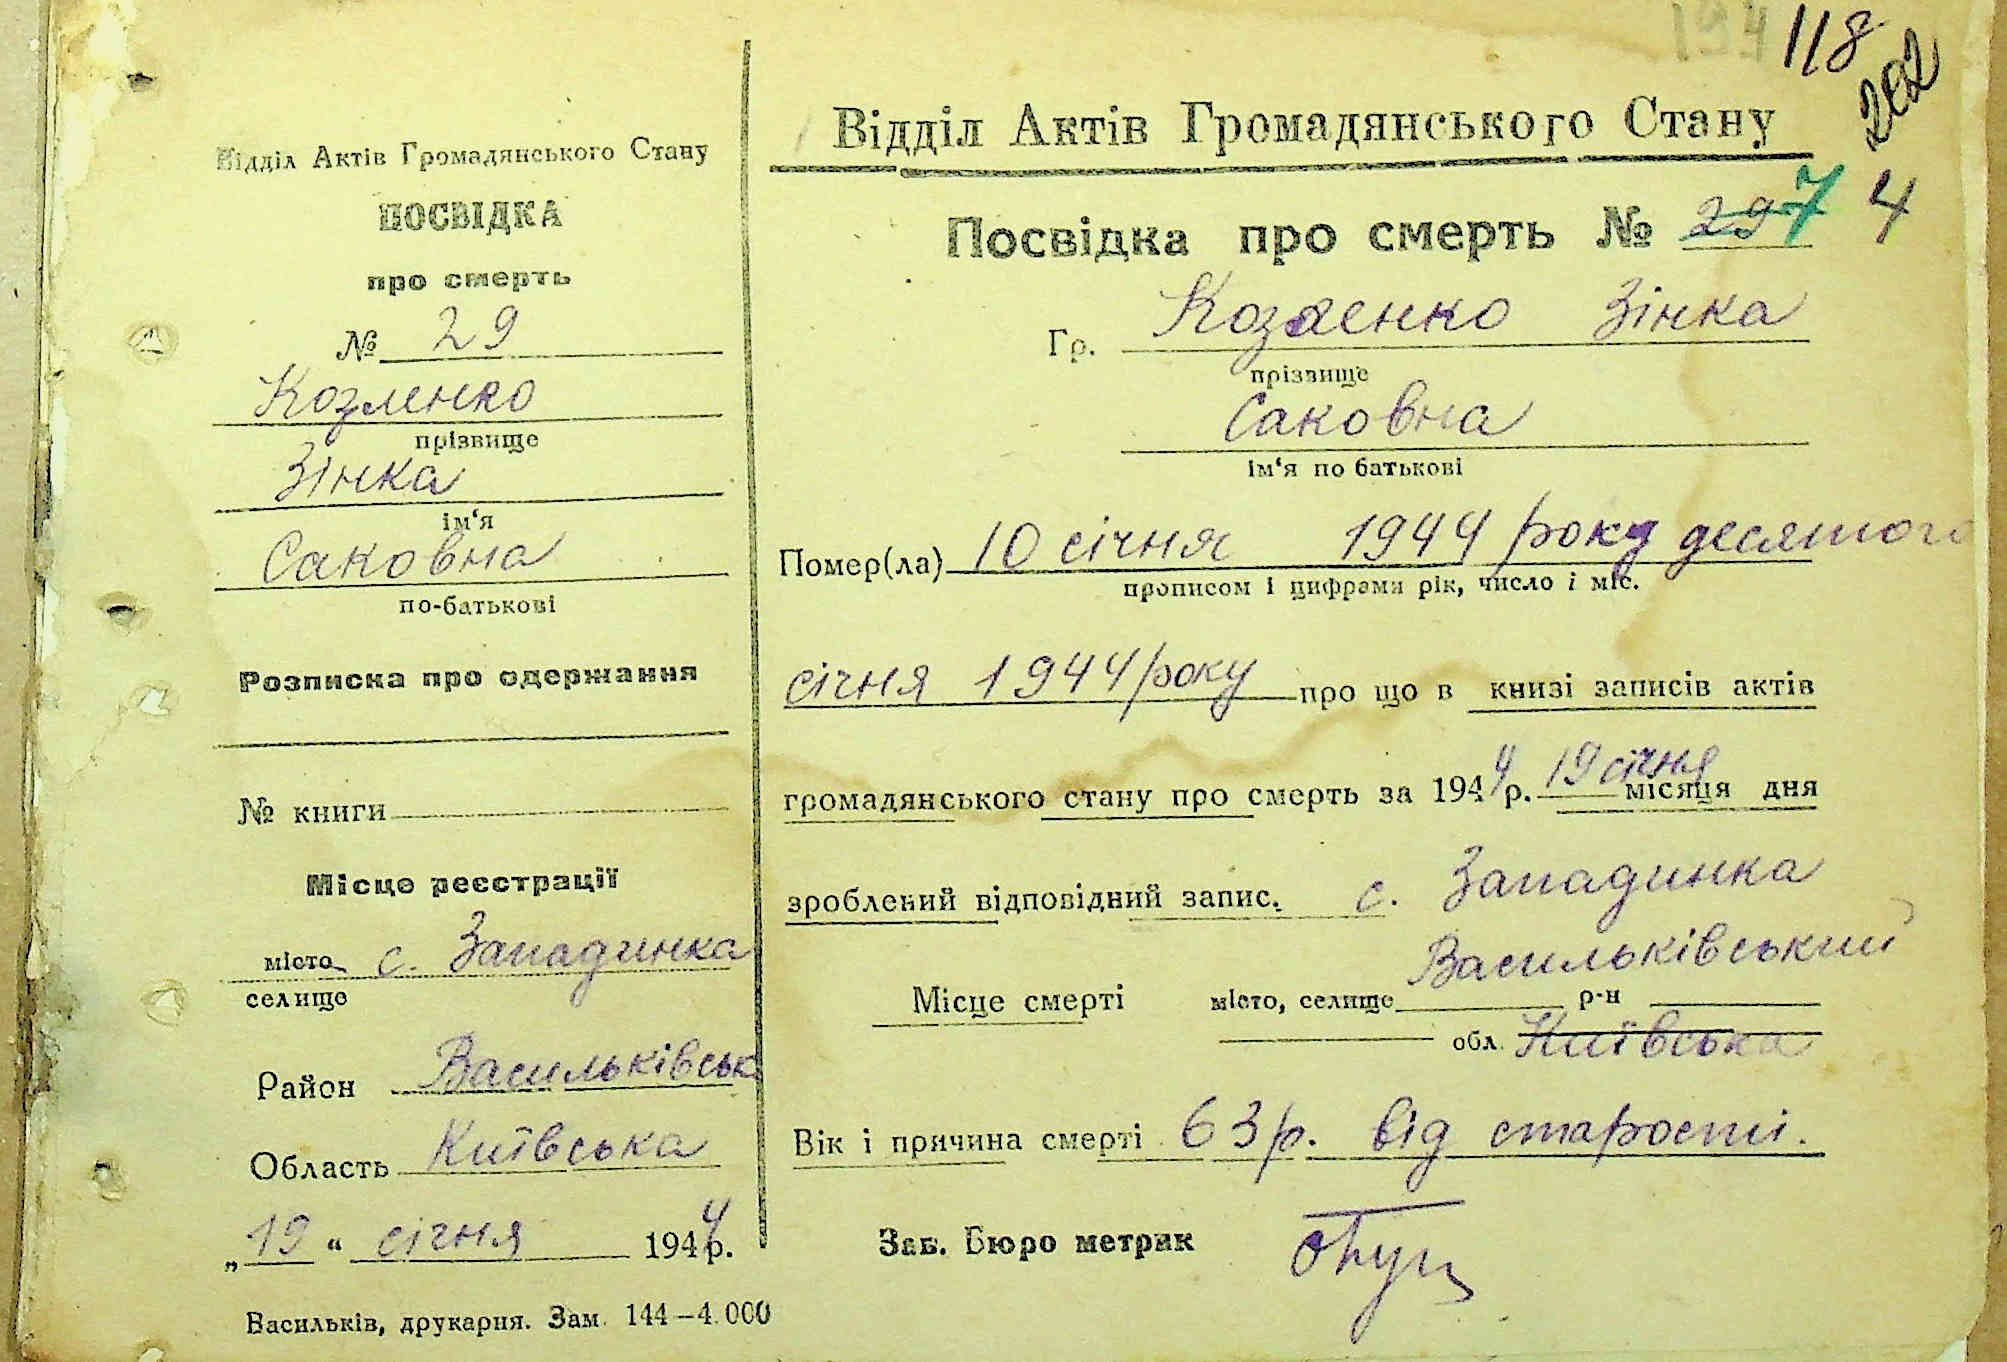 Відділ Актів Громадянського Стану
ПОСВІДКА
про смерть
№ 29
Козленко
прізвище
Зінка
ім‘я
Саковна
по-батькові
Розписка про одержання
№ книги
Місце реєстрації
місто с. Западинка
селище
Район Васильківськ
Область Київська
„19“ січня 1944р.
Васильків, друкарня. Зам. 144–4.000
118
202
Відділ Актів Громадянського Стану
Посвідка про смерть № 29 7 4
Гр. Козленко Зінка
прізвище
Саковна
ім‘я по батькові
Помер(ла) 10 січня 1944 року десятого
прописом і цифрами рік, число і міс.
січня 1944 року про що в книзі записів актів
громадянського стану про смерть за 1944р. 19 січня місяця дня
зроблений відповідний запис. с. Западинка
Васильківський
Місце смерті місто, селище р-н
обл. Київська
Вік і причина смерті 63 р. від старості.
Зав. Бюро метрик